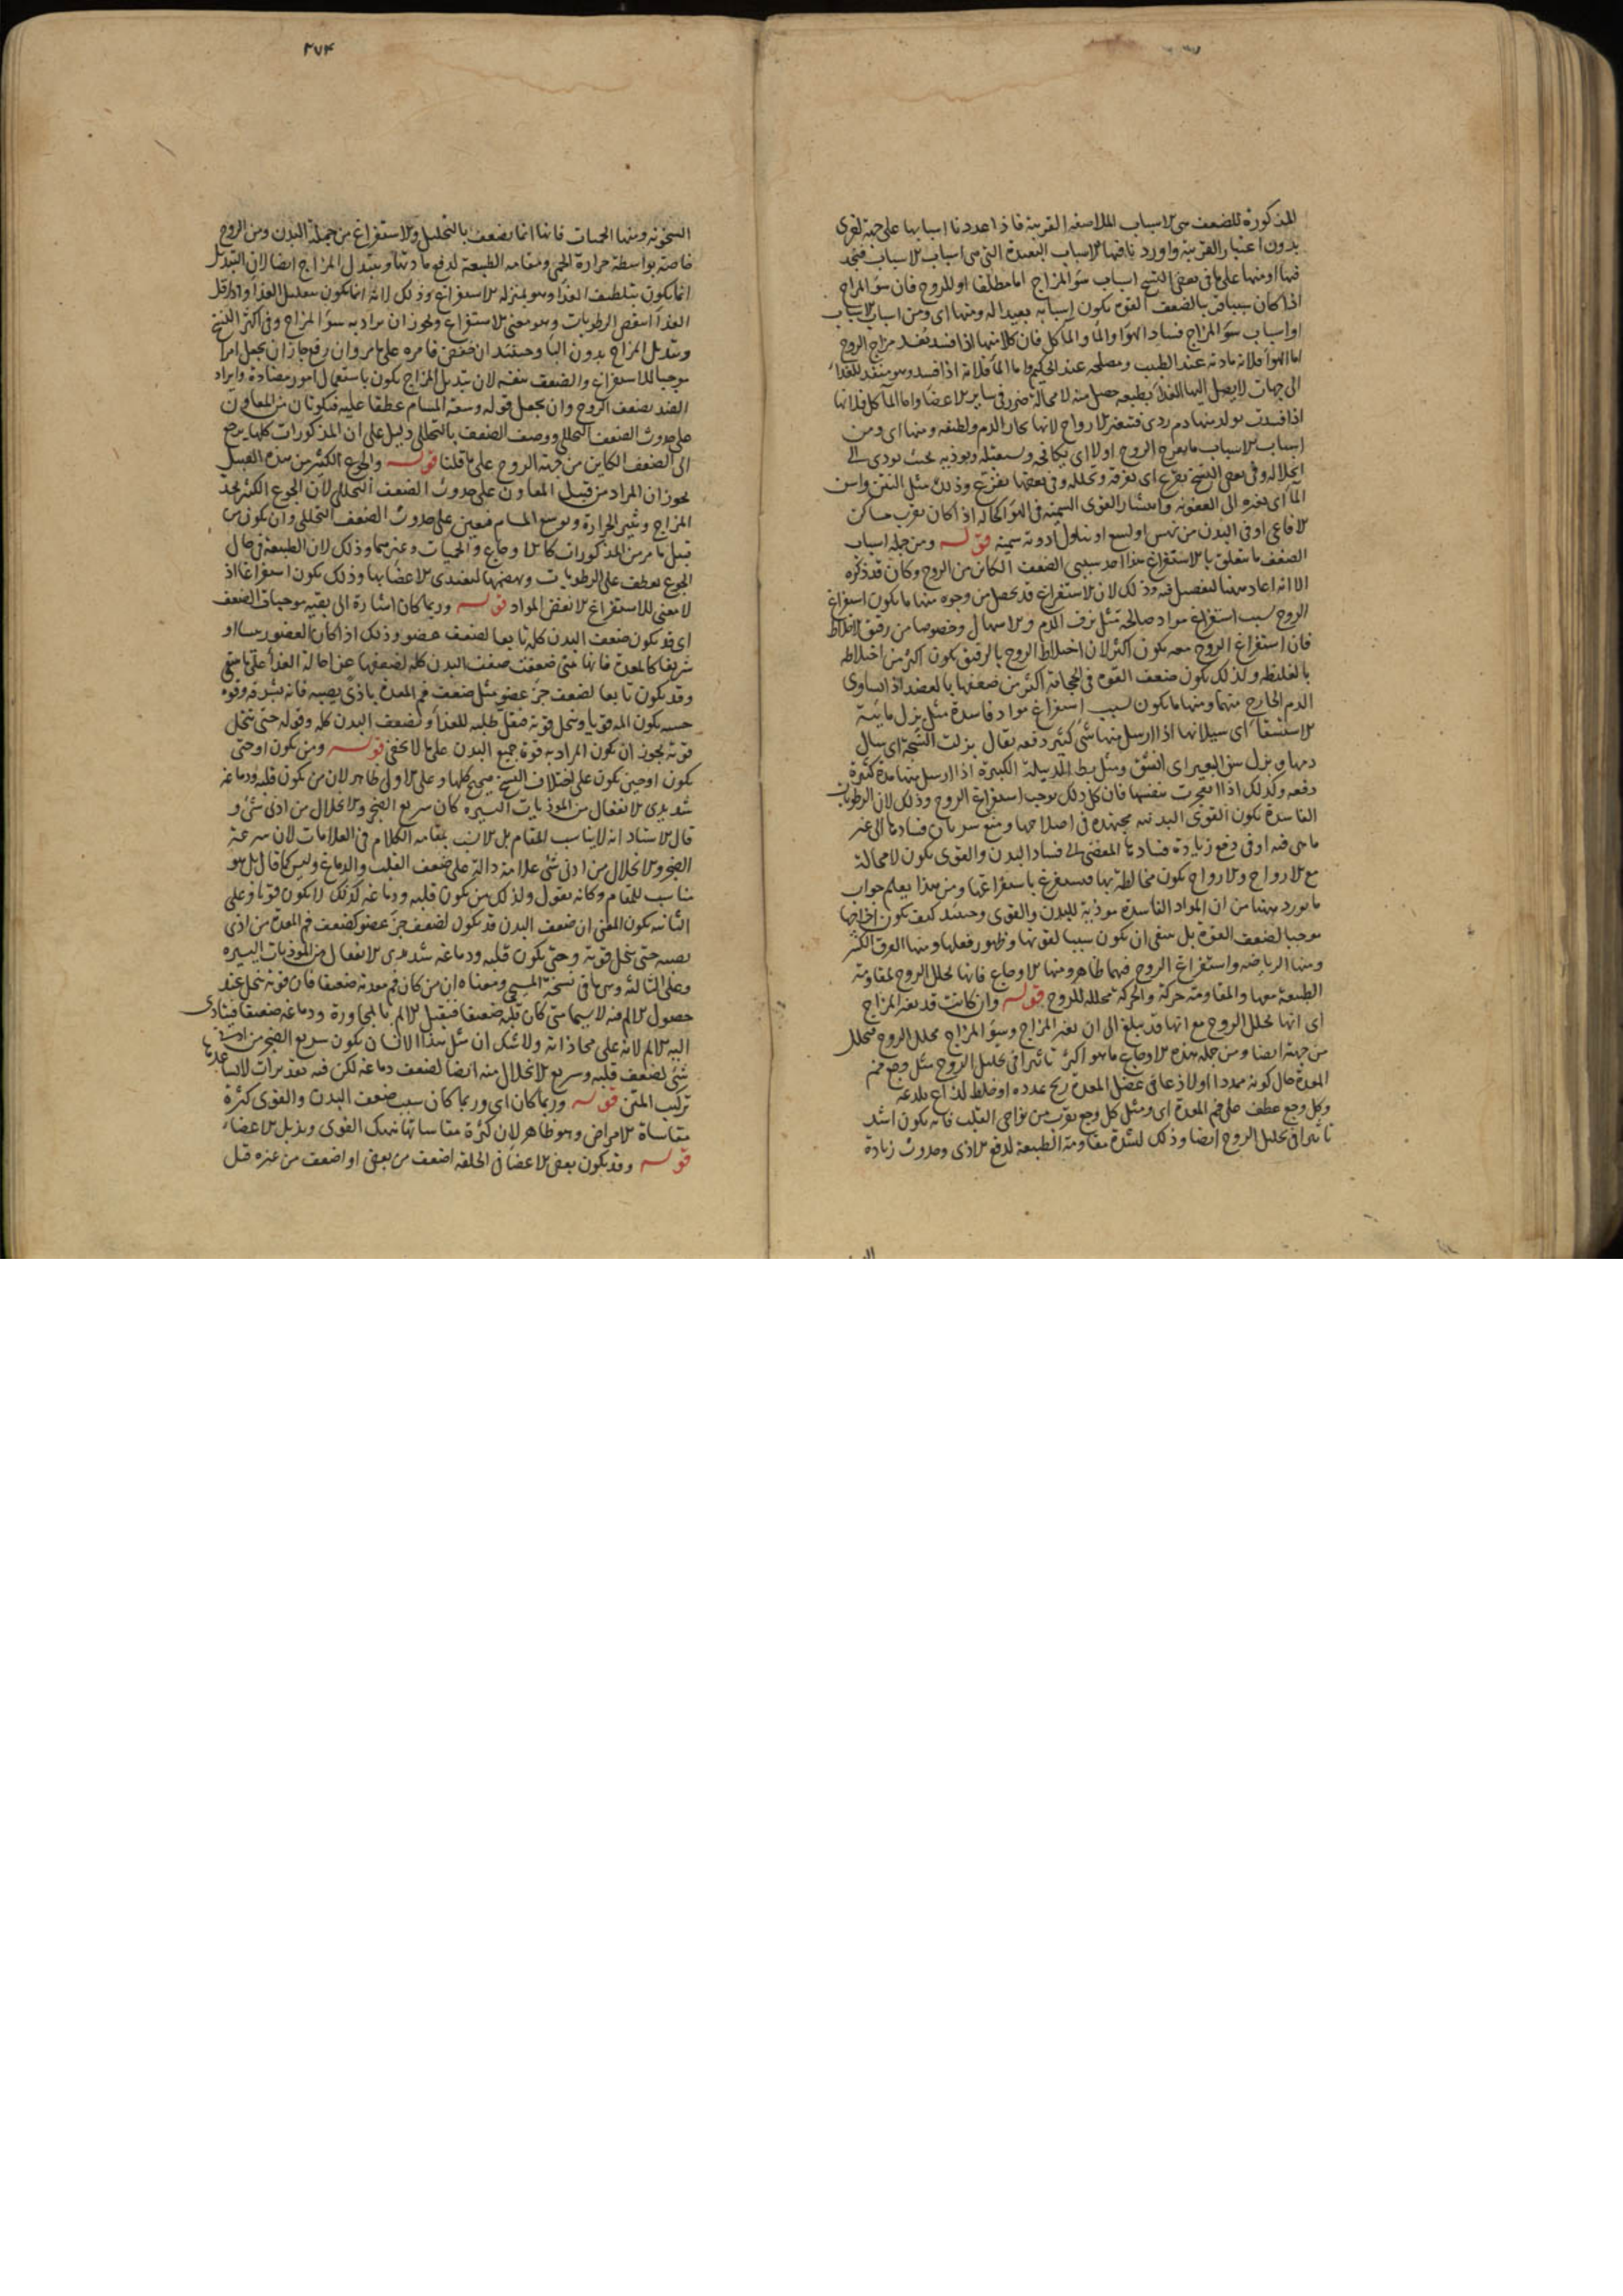 المذكورة للضعف هى الاسباب الملاصقة القريبة فاذا عددنا اسبابها على جهة اخرى
بدون اعتبار القريبة واورد نا فيها الاسباب البعيدة التى هى اسباب الاسباب فنجد
فيها او منها على ما فى بعض النسخ اسباب سوء المزاج اما مطلقا او للروح فان سوء المزاج
اذا كان سببا قريبا لضعف القوة يكون اسبابه بعيدا له ومنها اى ومن اسباب الاسباب
او اسباب سوء المزاج فساد الهواء والماء والمآكل فان كلا منها اذا فسد يفسد مزاج الروح
اما الهواء فلانه مادته عند الطبيب ومصلحه عند الحكيم واما الماء فلانه اذا فسد وهو منفذ للغذاء
الى جهات لا يصل اليها الغذاء بطبعه حصل منه لا محالة ضرر فى ساير الاعضاء واما المآكل فلانها
اذا فسدت تولد منها دم ردى فتتغير الارواح لانها بخار الدم ولطيفه ومنها اى ومن
اسباب الاسباب ما يعرج الروح اولا اى يكافحه ويستقبله ويوذيه بحيث يودى الى
انحلاله وفى بعض النسخ يفرغ اى يفرقه وتحلله وفى بعضها يفزع وذلك مثل النتن واسن
الماء اى تغيره الى العفونه وانتشار القوى السمية فى الهواء كحاله اذا كان بقرب مساكن
الافاعى او فى البدن من نهس او لسع او تناول ادوية سمية قوله ومن جملة اسباب
الضعف ما يتعلق بالاستفراغ هذا احد سببى الضعف الكائن من الروح وكان قد ذكره
الا انه اعاد ههنا لتفصيل فيه وذلك لان الاستفراغ قد يحصل من وجوه منها ما يكون استفراغ
الروح بسبب استفراغ مواد صالحة مثل نزف الدم والاسهال وخصوصا من رقيق الاخلاط
فان استفراغ الروح معه يكون اكثر لان اختلاط الروح بالرقيق يكون اكثر من اختلاطه
بالغليظ ولذلك يكون ضعف القوة فى الحجامة اكثر من ضعفها بالفصد اذا تساوى
الدم الخارج منهما ومنها ما يكون بسبب استفراغ مواد فاسدة مثل بزل مائية
الاستسقاء اى سيلانها اذا ارسل منها شى كثير دفعه يقال بزلت الشجة اى سال
دمها وبزل سن البعير اى انشق ومثل بط الدبيلة الكبيرة اذا ارسل منها مدة كثيرة
دفعه وكذلك اذا انفجرت بنفسها فان كل ذلك يوجب استفراغ الروح وذلك لان الرطوبات
الفاسدة تكون القوى البدنيه مجتهدة فى اصلاحها ومنع سريان فسادها الى غير
ما هى فيه او فى دفع زيادة فسادها المفضى الى فساد البدن والقوى تكون لا محالة
مع الارواح والارواح تكون مخالطة بها فيستفرغ باستفراغها ومن هذا يعلم جواب
ما يورد ههنا من ان المواد الفاسدة موذية للبدن والقوى وحينئذ كيف يكون اخراجها
موجبا لضعف القوة بل ينبغى ان يكون سببا لقوتها وظهور فعلها ومنها العرق الكثير
ومنها الرياضه واستفراغ الروح فيهما ظاهر ومنها الاوجاع فانها تحلل الروح لمقاومة
الطبيعة معها والمقاومة حركة والحركة محللة للروح قوله وان كانت قد تغير المزاج
اى انها تحلل الروح مع انها قد يبلغ الى ان تغير المزاج وسوء المزاج محلل الروح فتحلل
من جهته ايضا ومن جملة هذه الاوجاع ما هو اكثر تاثيرا فى تحليل الروح مثل وجع فم
المعدة حال كونه ممددا او لاذعا فى عضل المعدة ريح تمدده او خلط لذاع يلذعه
وكل وجع عطف على فم المعدة اى ومثل كل وجع يقرب من نواحى القلب فانه يكون اشد
تاثيرا فى تحليل الروح ايضا وذلك لشدة مقاومة الطبيعة لدفع الاذى وحدوث زيادة
٣٧٤
السخونه ومنها الحميات فانها انما تضعف بالتحليل والاستفراغ من جملة البدن ومن الروح
خاصة بواسطة حرارة الحمى ومقاومة الطبيعة لدفع مادتها وبتبدل المزاج ايضا لان التبديل
انما يكون بتلطيف الغذاء وهو بمنزلة الاستفراغ وذلك لانه انما يكون بتقليل الغذاء واذا قل
الغذاء انتقص الرطوبات وهو معنى الاستفراغ ويجوز ان يراد به سوء المزاج وفى اكثر النسخ
وتبديل المزاج بدون الباء وحينئذ ان خفض فامره على ما مر وان رفع جاز ان يجعل امرا
موجبا للاستفراغ والضعف بنفسه لان تبديل المزاج يكون باستعمال امور مضادة وايراد
الضد يضعف الروح وان يجعل قوله وسعة المسام عطفا عليه فيكونان من المعاون
على حدوث الضعف التحللى ووصف الضعف بالتحللى دليل على ان المذكورات كلها يرجع
الى الضعف الكاين من جهة الروح على ما قلنا قوله والجوع الكثير من هذه القبيل
يجوز ان المراد من قبيل المعاون على حدوث الضعف التحللى لان الجوع الكثير يحد
المزاج ويثير الحرارة ويوسع المسام فيعين على حدوث الضعف التحللى وان يكون من
قبيل ما مر من المذكورات كالاوجاع والحميات وغيرهما وذلك لان الطبيعة فى حال
الجوع تعطف على الرطوبات وتهضمها لتغتذى الاعضاء بها وذلك يكون استفراغا اذ
لا معنى للاستفراغ الا نقص المواد قوله وربما كان اشارة الى بقية موجبات الضعف
اى قد يكون ضعف البدن كله تابعا لضعف عضو وذلك اذا كان العضو رييسا او
شريفا كالمعدة فانها متى ضعفت ضعف البدن كله لضعفها عن احالة الغذاء على ما ينبغى
وقد يكون تابعا لضعف جزء عضو مثل ضعف فم المعدة باذى يصيبه فانه بشرفه وقوة
حسه يكون المه قويا وتنحل قوته فيقل طلبه للغذاء ويضعف البدن كله وقوله حتى تنحل
قوته يجوز ان يكون المراد به قوة جميع البدن على ما لا يخفى قوله ومن يكون او حتى
يكون او حين يكون على اختلاف النسخ صحيح كلها وعلى الاول ظاهر لان من يكون قلبه ودماغه
شديدى الانفعال من الموذيات اليسيره كان سريع الضجر والانحلال من ادنى شى و
قال الاستاد انه لا يناسب المقام بل الانسب بمقامه الكلام فى العلامات لان سرعة
الضجر والانحلال من ادنى شى علامة دالة على ضعف القلب والدماغ وليس كما قال بل هو
مناسب للمقام وكانه يقول ولذلك من يكون قلبه ودماغه كذلك لا يكون قويا وعلى
الثانيه يكون المعنى ان ضعف البدن قد يكون لضعف جزء عضو كضعف فم المعدة من اذى
يصيبه حتى تنحل قوته وحتى يكون قلبه ودماغه شديدى الانفعال من الموذيات اليسيره
وعلى الثالثه وهى ما فى نسخة المسيحى ومعناه ان من كان فم معدته ضعيفا فان قوته تنحل عند
حصول الالم فيه لا سيما متى كان قلبه ضعيفا فيقبل الالم بالمجاورة ودماغه ضعيفا فيتادى
اليه الالم لانه على محاذاته ولا شك ان مثل هذا الانسان يكون سريع الضجر من ادنى
شى لضعف قلبه وسريع الانحلال منه ايضا لضعف دماغه لكن فيه تقديرات لا يساعدها
تركيب المتن قوله وربما كان اى وربما كان سبب ضعف البدن والقوى كثرة
مقاساة الامراض وهو ظاهر لان كثرة مقاساتها تنهك القوى ويذبل الاعضاء
قوله وقد يكون بعض الاعضاء فى الخلقه اضعف من بعض او اضعف من غيره قيل